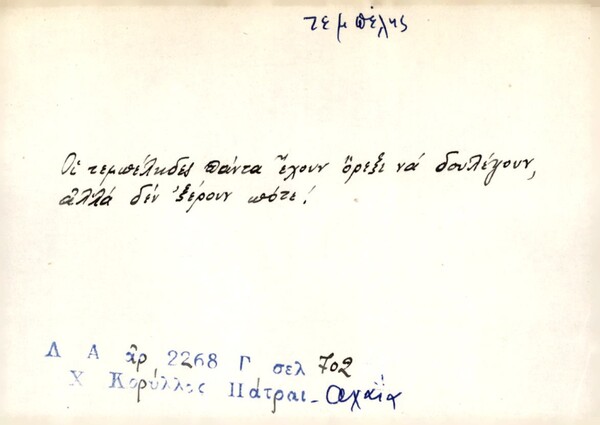 τεμπέλης
Οἱ τεμπέληδες πάντα ἔχουν ὄρεξι νά δουλέψουν,
ἀλλά δέν ξέρουν πότε!
Λ Α ἀρ 2268 Γ σελ 702
Χ Κορύλλος Πάτραι - Ἀχαΐα